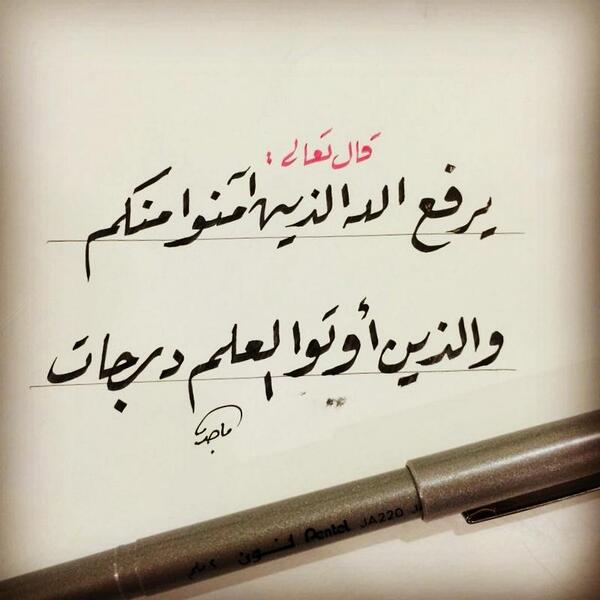 قال تعالى :
يرفع الله الذين آمنوا منكم
والذين أوتوا العلم درجات
ماجد
٢ ملم لنون Pentel JA220